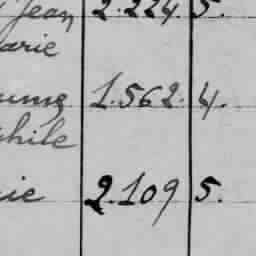 Jean 2.224 5.
arie
1.562. 4.
phile
ie 2.109 5.